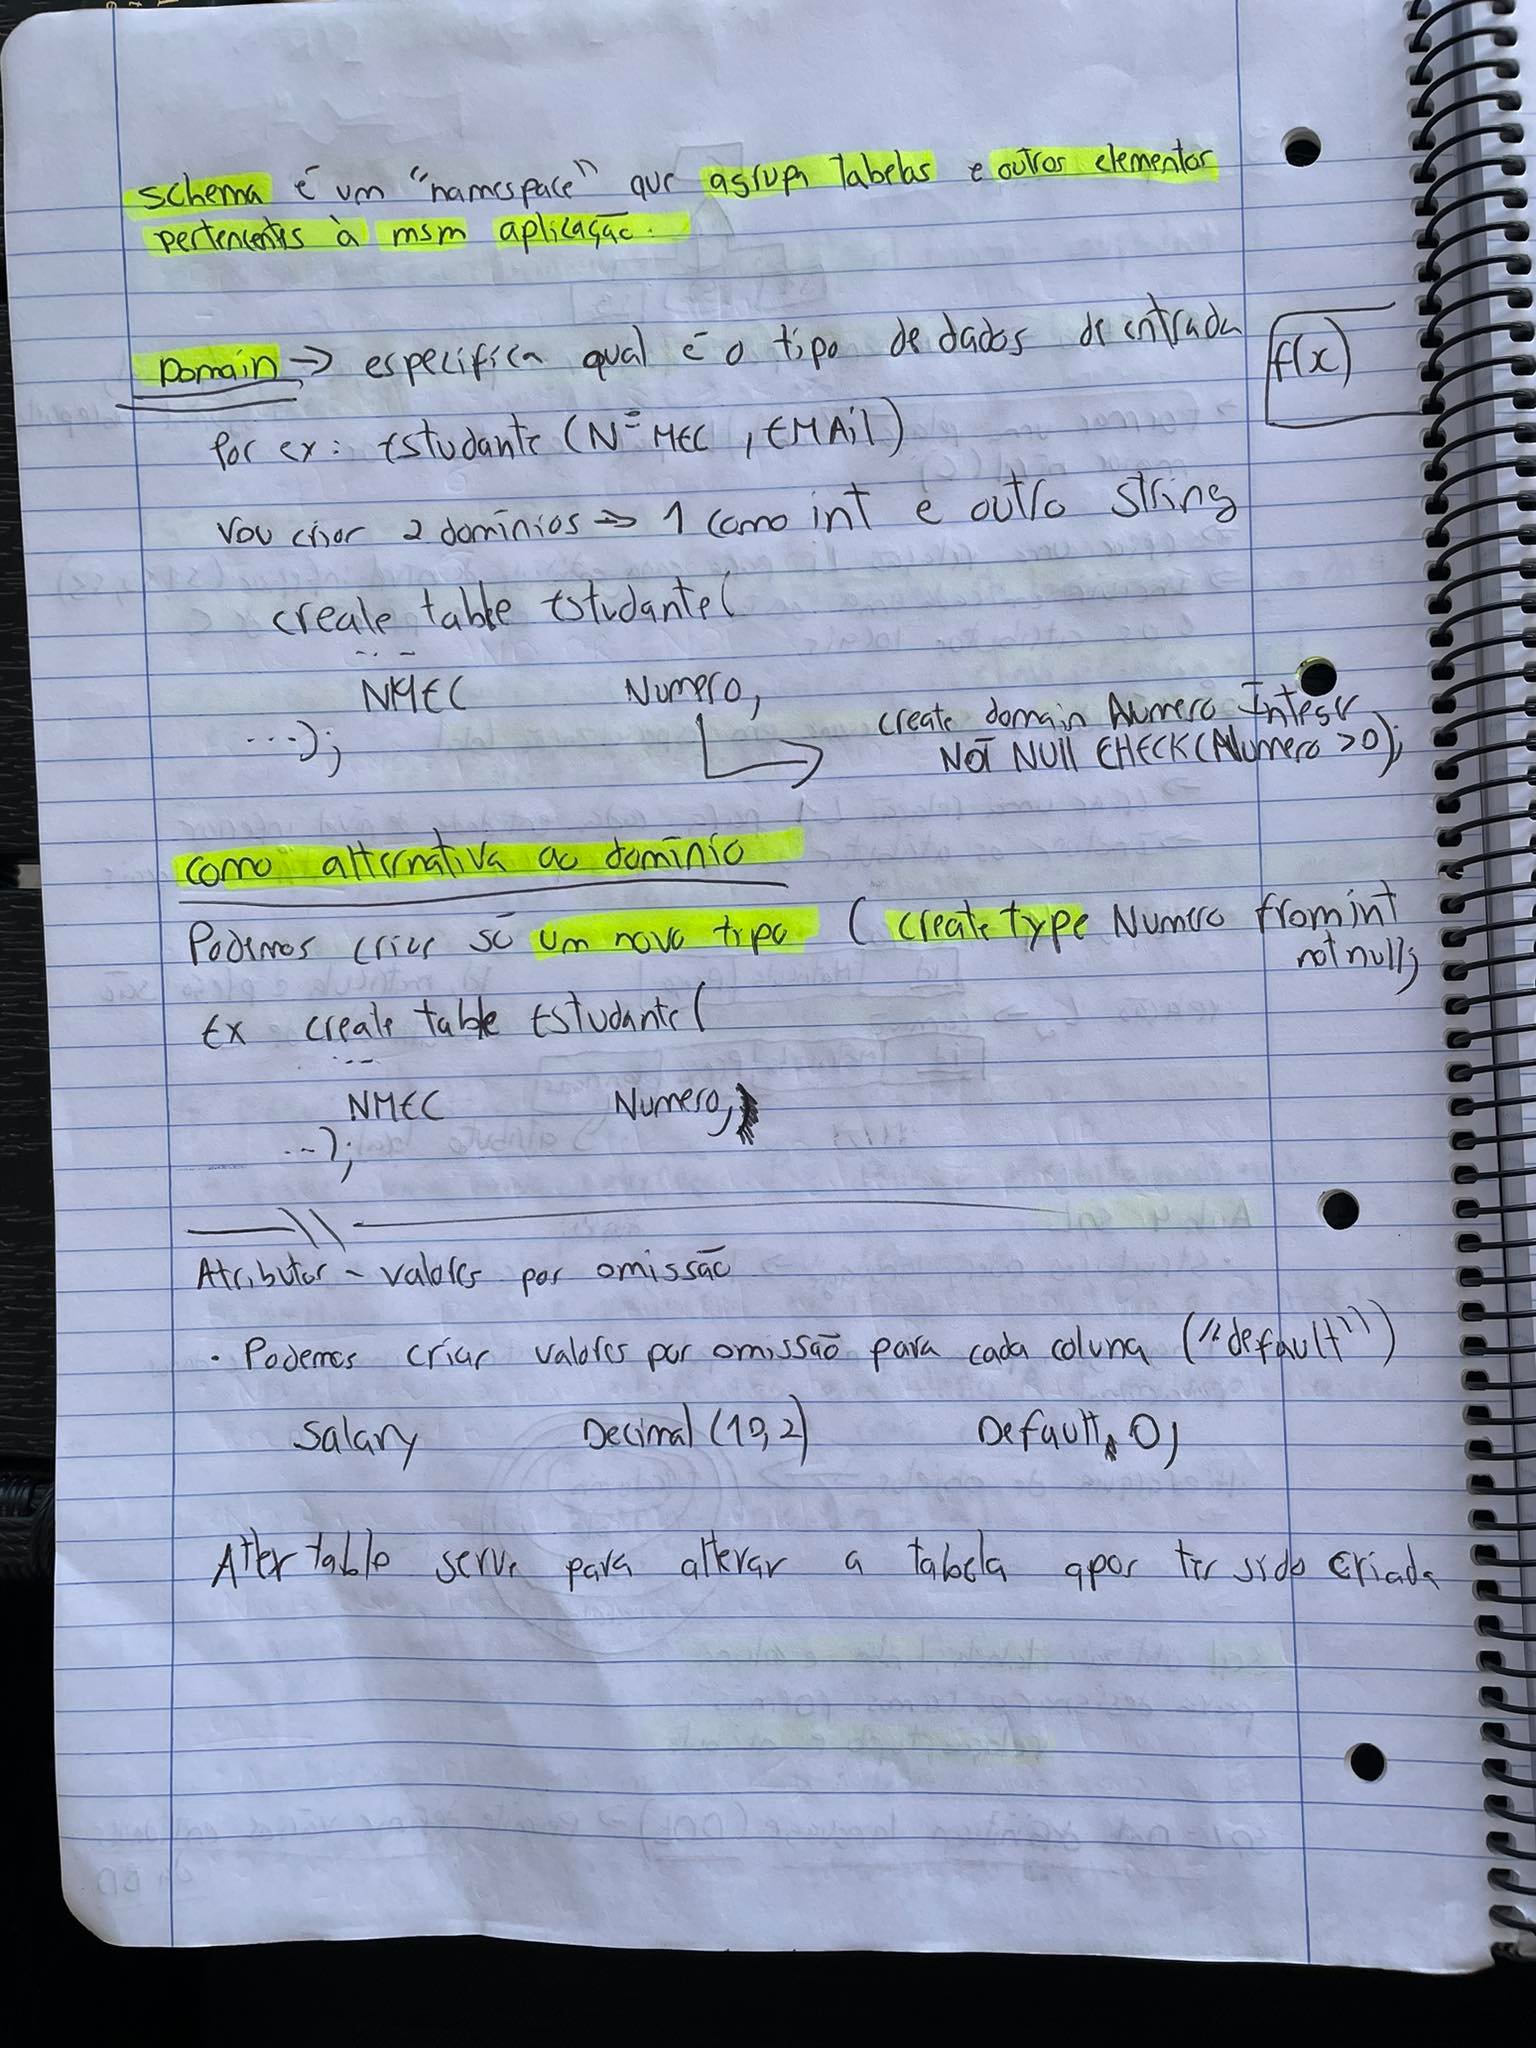 Schema é um "namespace" que agrupa tabelas e outros elementos
pertencentes à msm aplicação.
Domain → especifica qual é o tipo de dados de entrada
f(x)
Por ex: Estudante (Nº MEC, EMAil)
Vou criar 2 domínios → 1 como int e outro string
create table Estudante(
...
NMEC Numero,
...);
create domain Numero Integer
NOT NULL CHECK(Numero >0);
como alternativa ao domínio
Podemos criar só um novo tipo ( create type Numero from int
not null;
Ex create table Estudante(
...
NMEC Numero,
...);
Atributos - valores por omissão
• Podemos criar valores por omissão para cada coluna ("default")
Salary Decimal (10,2) Default 0,
Alter table serve para alterar a tabela apos ter sido criada